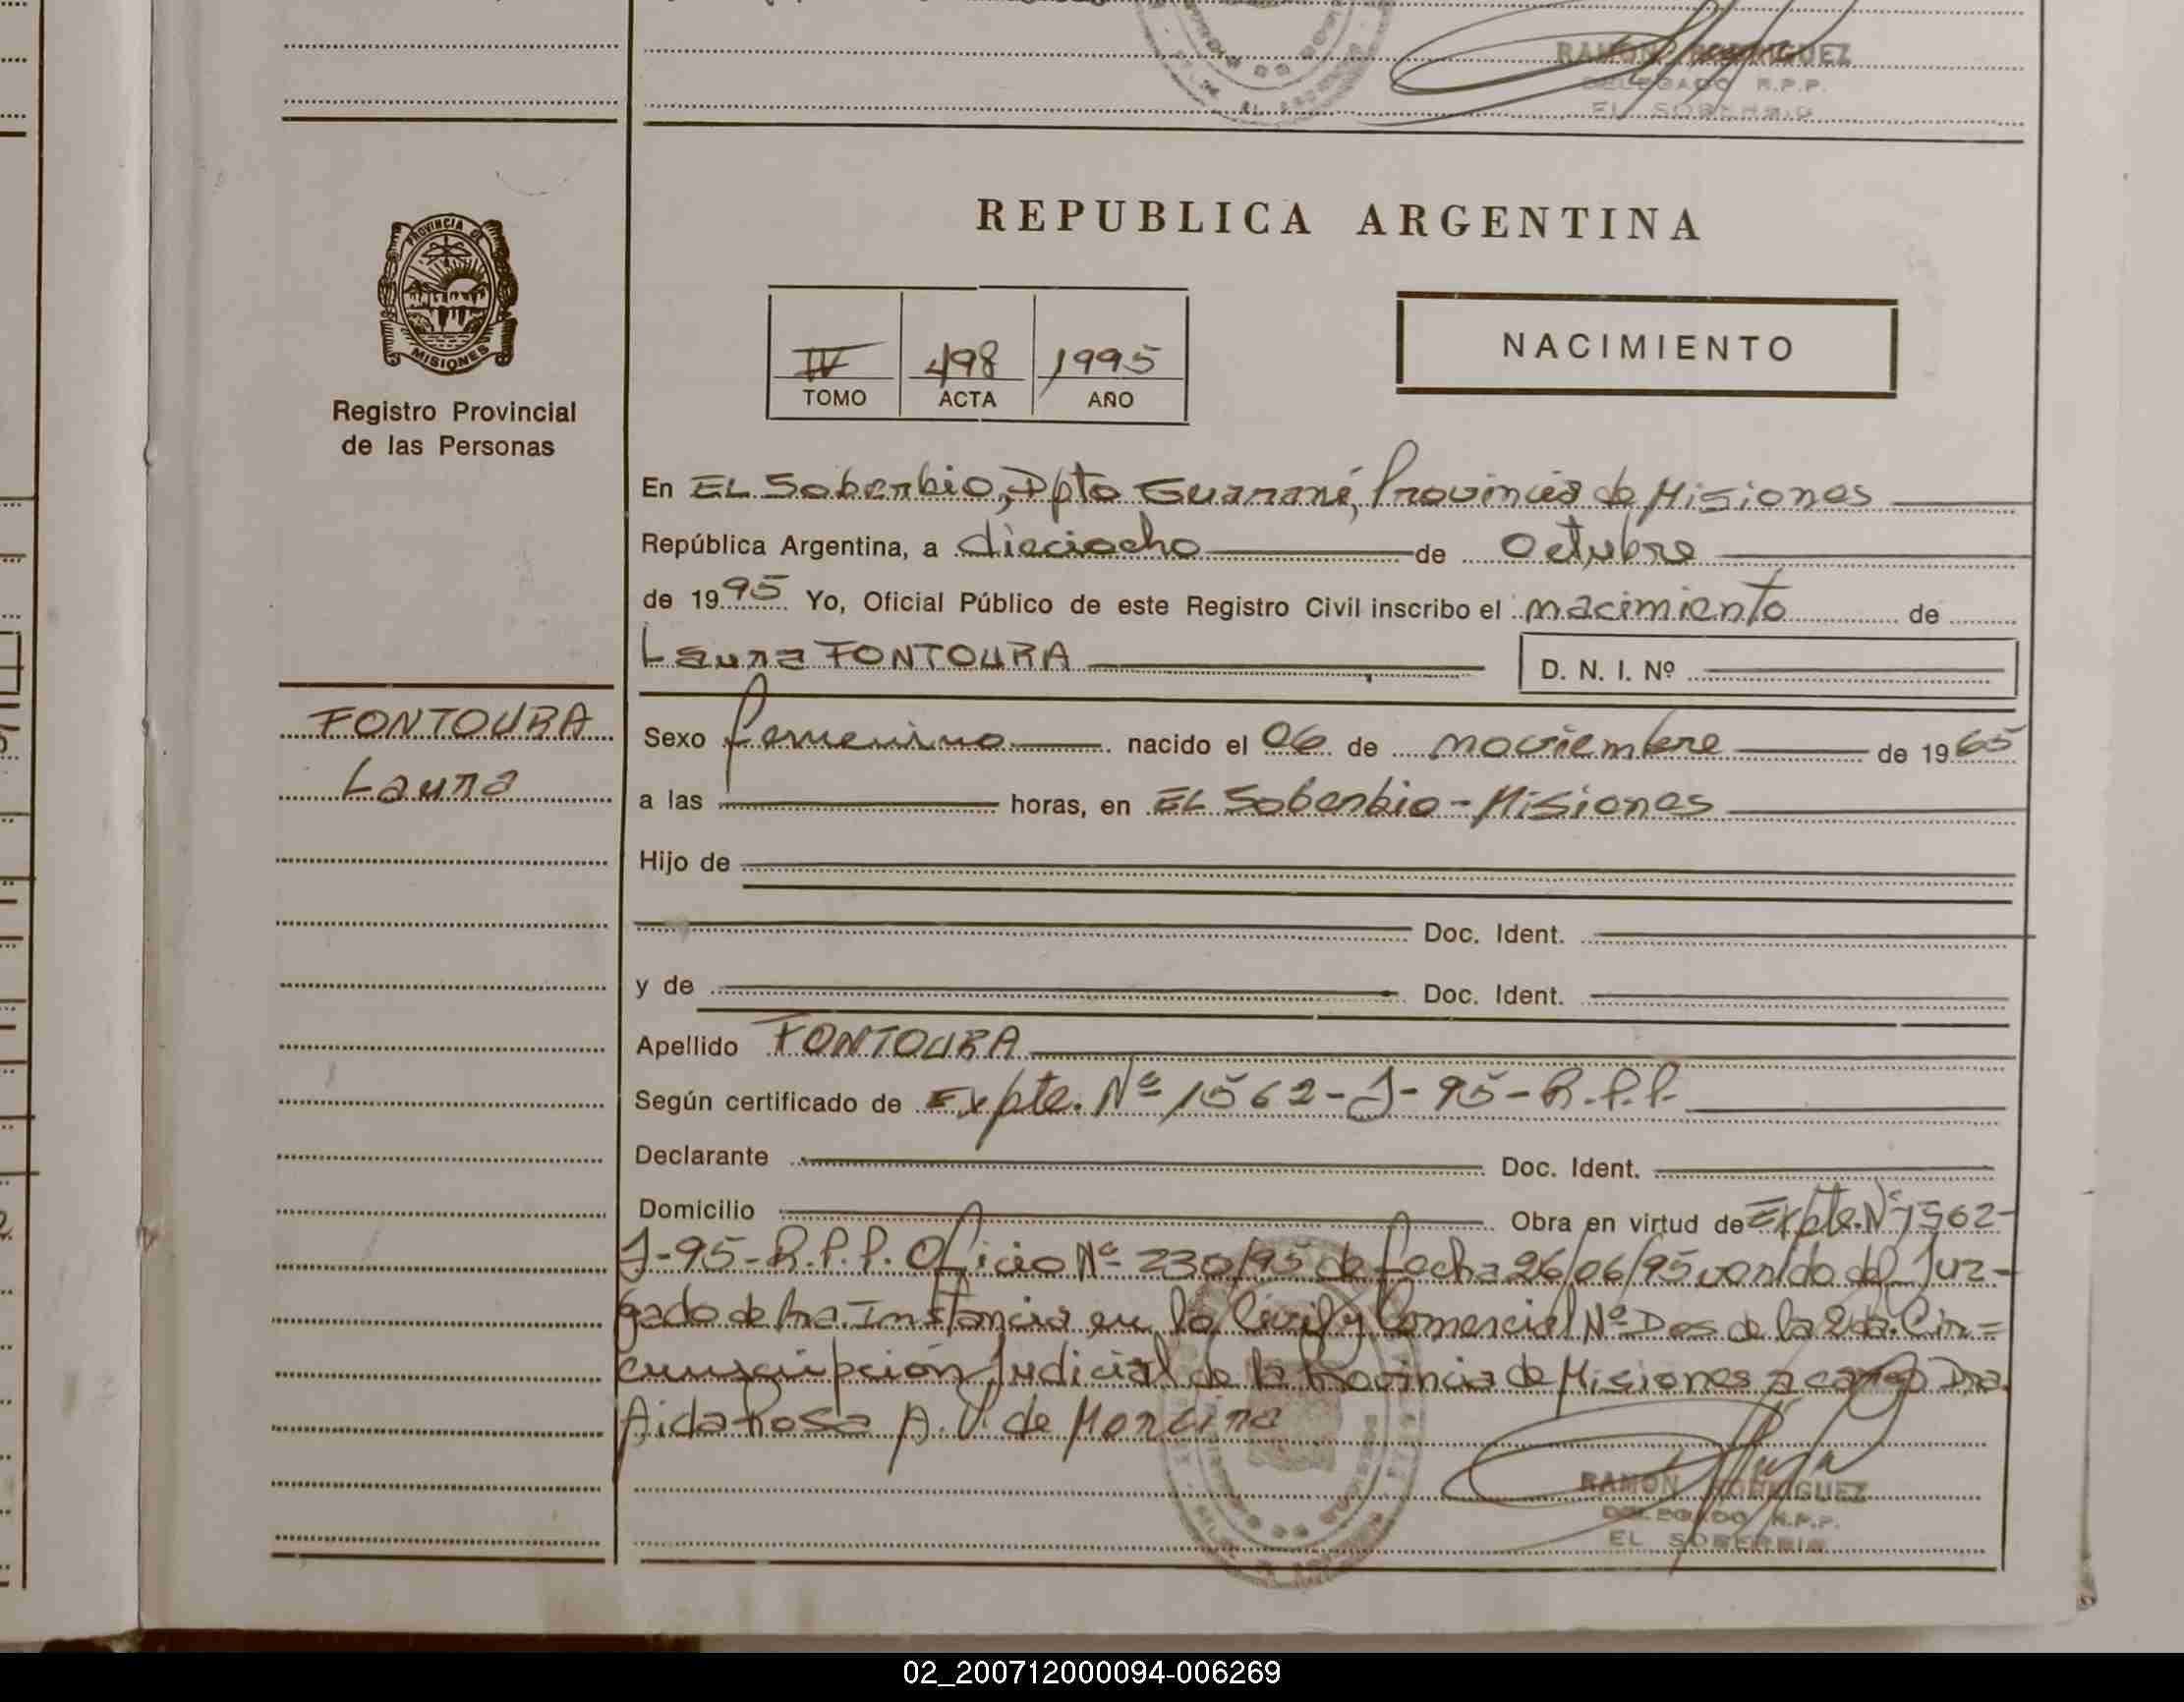 RAMON RODRIGUEZ
DELEGADO R.P.P.
EL SOBERBIO
PROVINCIA DE
MISIONES
Registro Provincial
de las Personas
REPUBLICA ARGENTINA
IV 498 1995
TOMO ACTA AÑO
NACIMIENTO
En EL Soberbio, Dpto Guaraní, Provincia de Misiones
República Argentina, a dieciocho de Octubre
de 1995 Yo, Oficial Público de este Registro Civil inscribo el nacimiento de
Laura FONTOURA D. N. I. Nº
FONTOURA
Laura
Sexo femenino nacido el 06 de noviembre de 1965
a las horas, en EL Soberbio - Misiones
Hijo de
Doc. Ident.
y de Doc. Ident.
Apellido FONTOURA
Según certificado de Expte. Nº 1562-J-95-R.P.P.
Declarante Doc. Ident.
Domicilio Obra en virtud de Expte. Nº 1562-
J-95-R.P.P. Oficio Nº 230/95 de fecha 26/06/95 venido del Juz-
gado de 1ra. Instancia en lo Civil y Comercial Nº Dos de la 2da. Cir=
cunscripción Judicial de la Provincia de Misiones a cargo Dra.
Aida Rosa A. V. de
RAMON RODRIGUEZ
DELEGADO R.P.P.
EL SOBERBIO
02_200712000094-006269